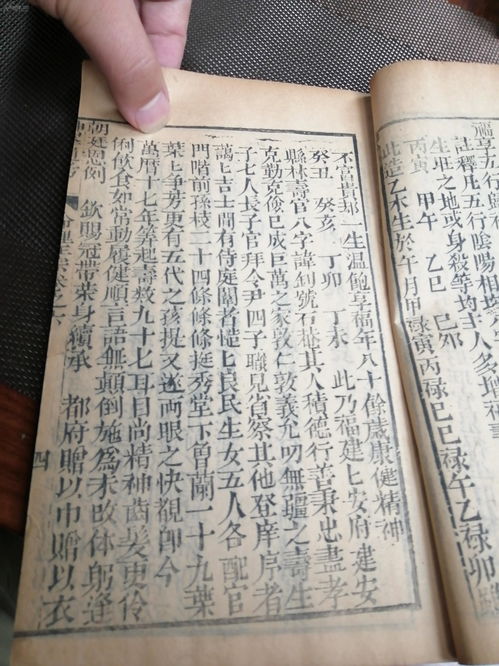 福享五行
註釋凡五行陰陽相
生旺之地或身殺等均主人多
丙寅 甲午 乙巳 己卯
此造乙木生於午月甲祿寅丙祿巳巳祿午乙祿卯
不富貴却一生温飽享福年八十餘歲康健精神
癸丑 癸亥 丁卯 丁未 此乃福建 安府建安
縣林壽官八字諱釗號石松其人積德行善秉忠盡孝
克勤克儉已成巨萬之家敦仁敦義允叨無疆之壽生
子七人長子官拜令尹四子職見省察其他登庠序者
藹々吉士間有侍庭闈者慥々良民生女五人各配官
門階前孫枝二十四條條條挺秀堂下曾蘭一十九葉
葉々爭芳更有五代之孩提又遂両眼之快覩即今
萬曆十七年筭起壽数九十七耳目尚精神齒髮更伶
俐飲食如常動履健順言語無顛倒施爲未改体躬逢
朝廷恩例 欽賜冠帶荣身續承 都府贈以巾贈以衣
四